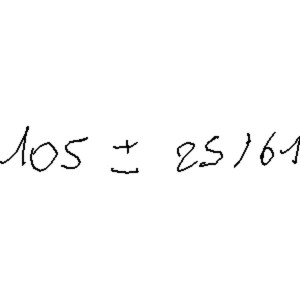 105 ± 25/61